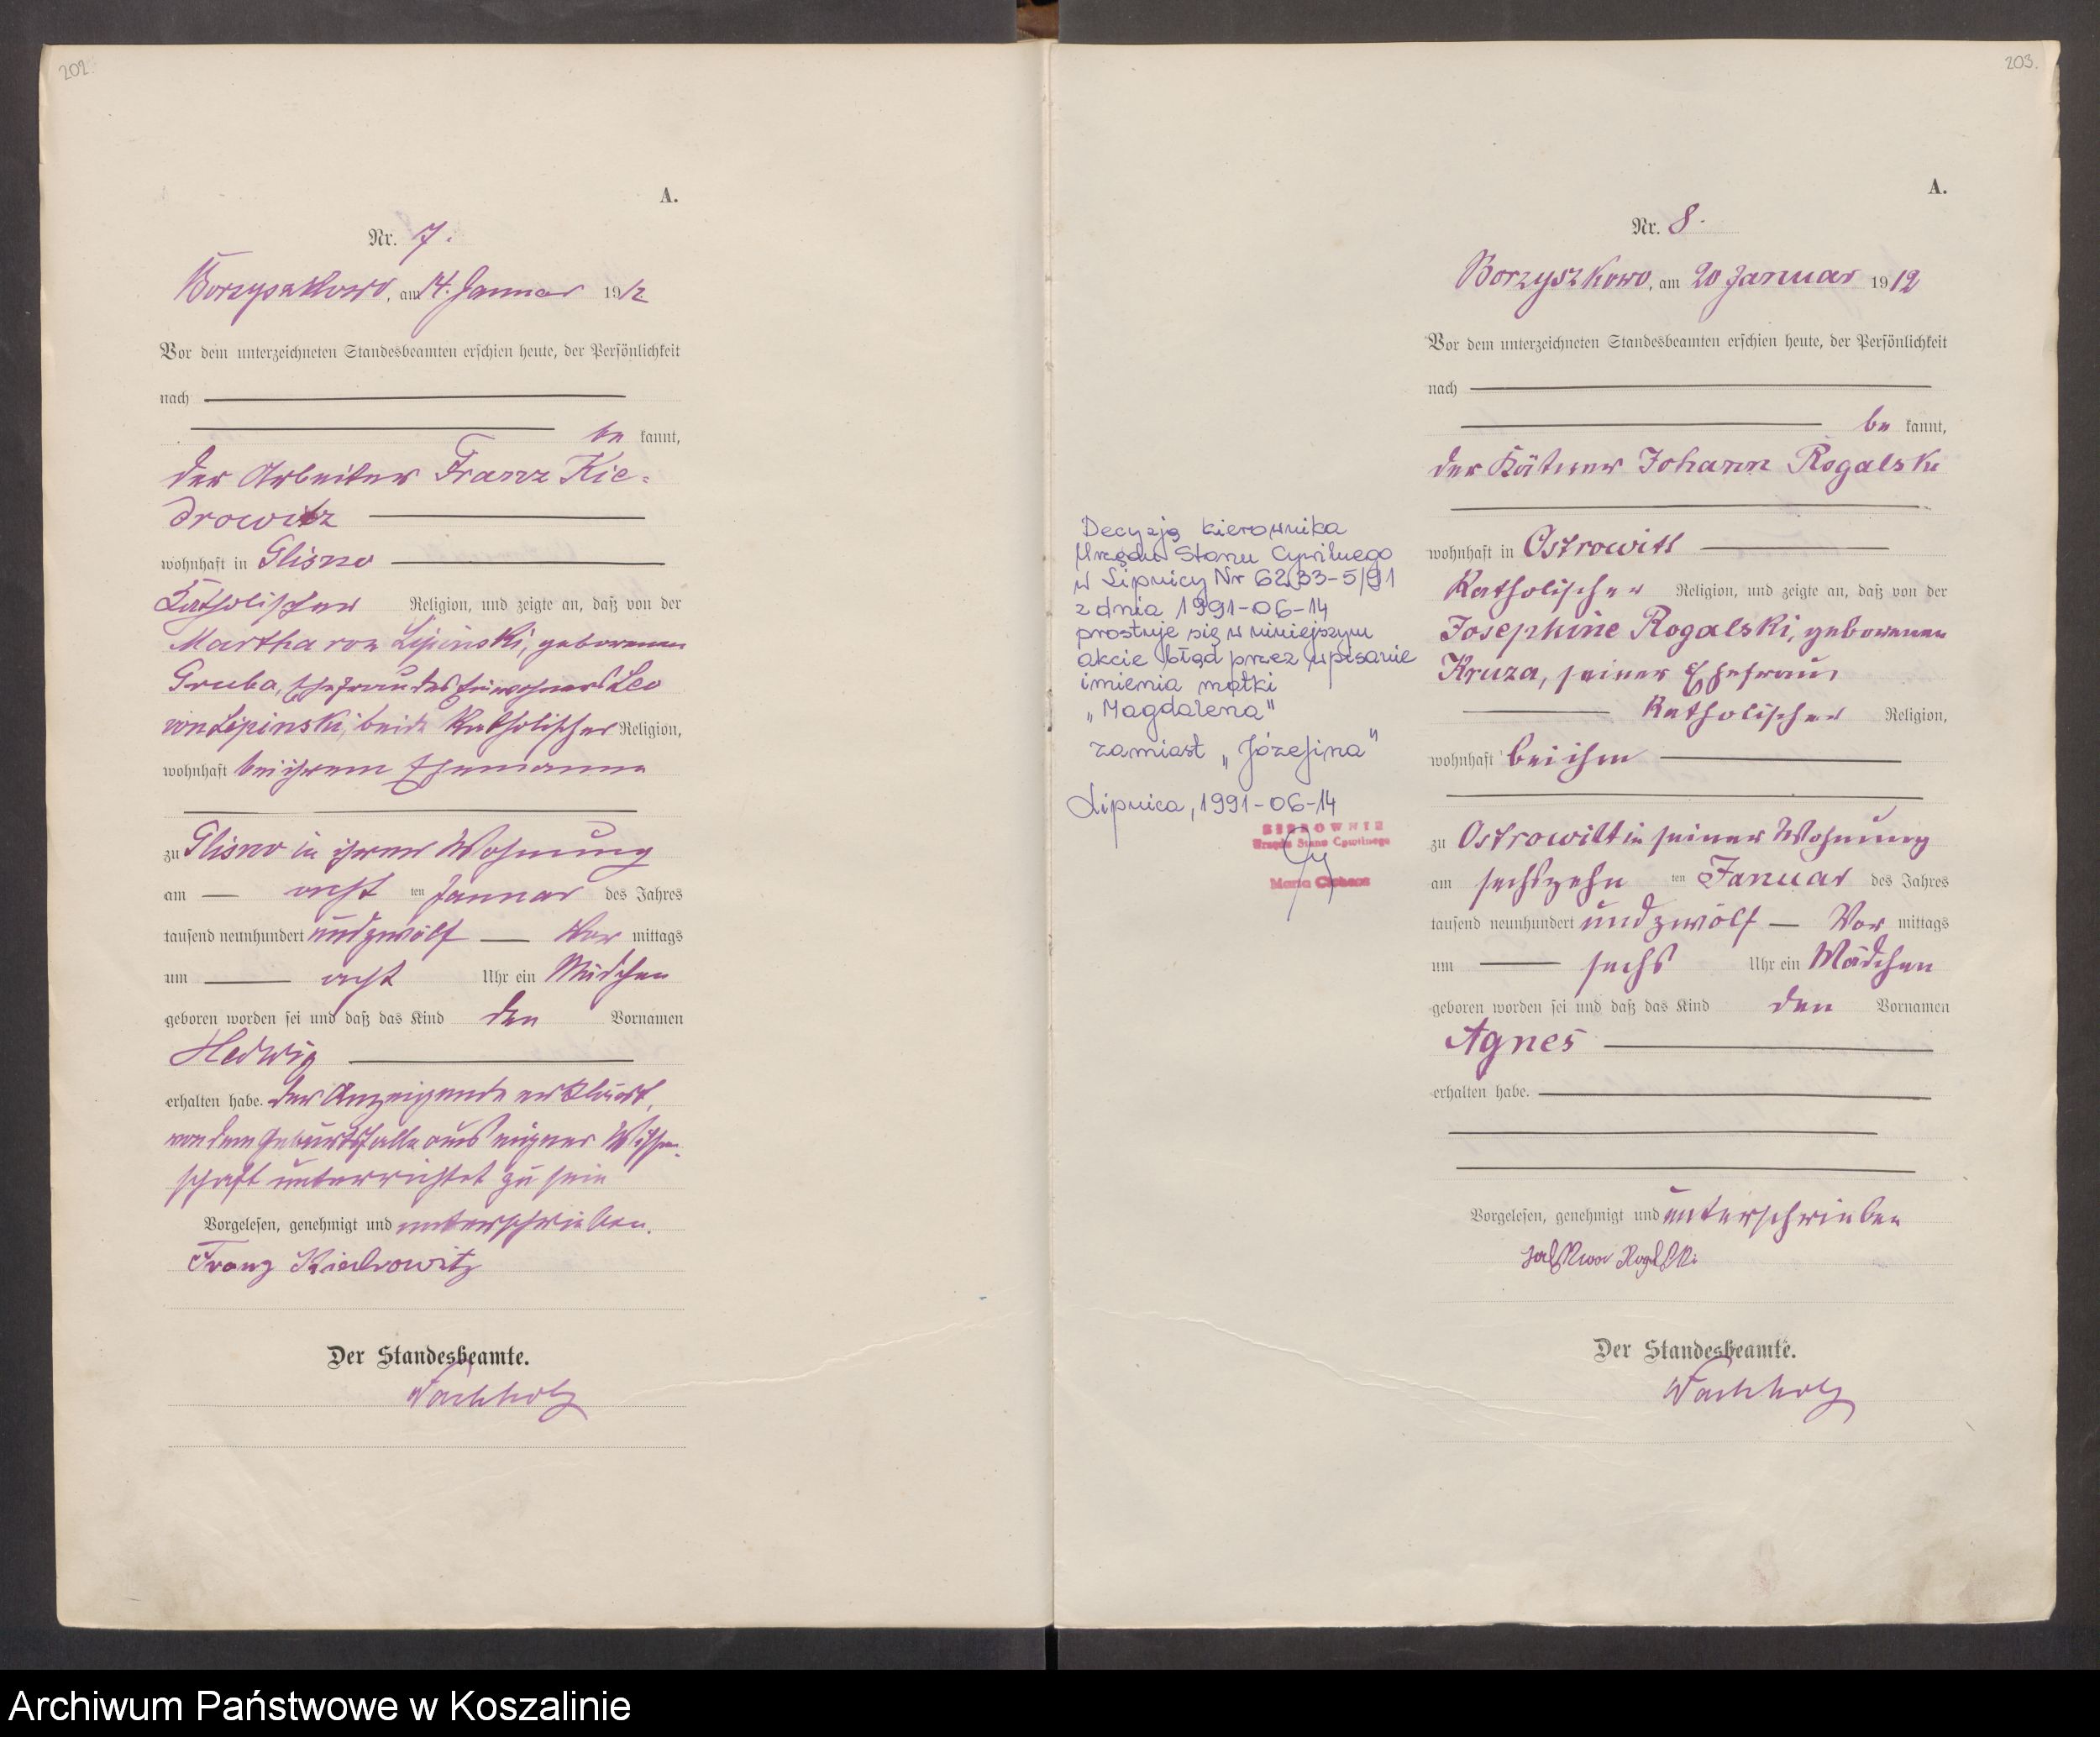 202.
A.
Nr. 7.
Borzyszkowo, am 14. Januar 1912
Vor dem unterzeichneten Standesbeamten erschien heute, der Persönlichkeit
nach
be kannt,
der Arbeiter Franz Kie-
drowitz
wohnhaft in Glisno
Katholischer Religion, und zeigte an, daß von der
Martha von Lipinski, geborenen
Gruba, Ehefrau des Einwohners Leo
von Lipinski, beide Katholischer Religion,
wohnhaft bei ihrem Ehemanne
zu Glisno in ihrer Wohnung
am acht ten Januar des Jahres
tausend neunhundert und zwölf Vor mittags
um acht Uhr ein Mädchen
geboren worden sei und daß das Kind den Vornamen
Hedwig
erhalten habe. Der Anzeigende erklärt,
von dem Geburtsfalle aus eigner Wissen-
schaft unterrichtet zu sein
Vorgelesen, genehmigt und unterschrieben.
Franz Kiedrowitz
Der Standesbeamte.
Wachholz
203.
A.
Nr. 8.
Borzyszkowo, am 20 Januar 1912
Vor dem unterzeichneten Standesbeamten erschien heute, der Persönlichkeit
nach
be kannt,
der Kätner Johann Rogalski
wohnhaft in Ostrowitt
Katholischer Religion, und zeigte an, daß von der
Josephine Rogalski, geborenen
Kruza, seiner Ehefrau,
Katholischer Religion,
wohnhaft bei ihm
zu Ostrowitt in seiner Wohnung
am sechszehn ten Januar des Jahres
tausend neunhundert und zwölf Vor mittags
um sechs Uhr ein Mädchen
geboren worden sei und daß das Kind den Vornamen
Agnes
erhalten habe.
Vorgelesen, genehmigt und unterschrieben
Rogalski
Der Standesbeamte.
Wachholz
Decyzją kierownika
Urzędu Stanu Cywilnego
w Lipnicy Nr 6233-5/91
z dnia 1991-06-14
prostuje się w niniejszym
akcie błąd przez wpisanie
imienia matki
„Magdalena"
zamiast „Józefina"
Lipnica, 1991-06-14
KIEROWNIK
Urzędu Stanu Cywilnego
Maria
Archiwum Państwowe w Koszalinie